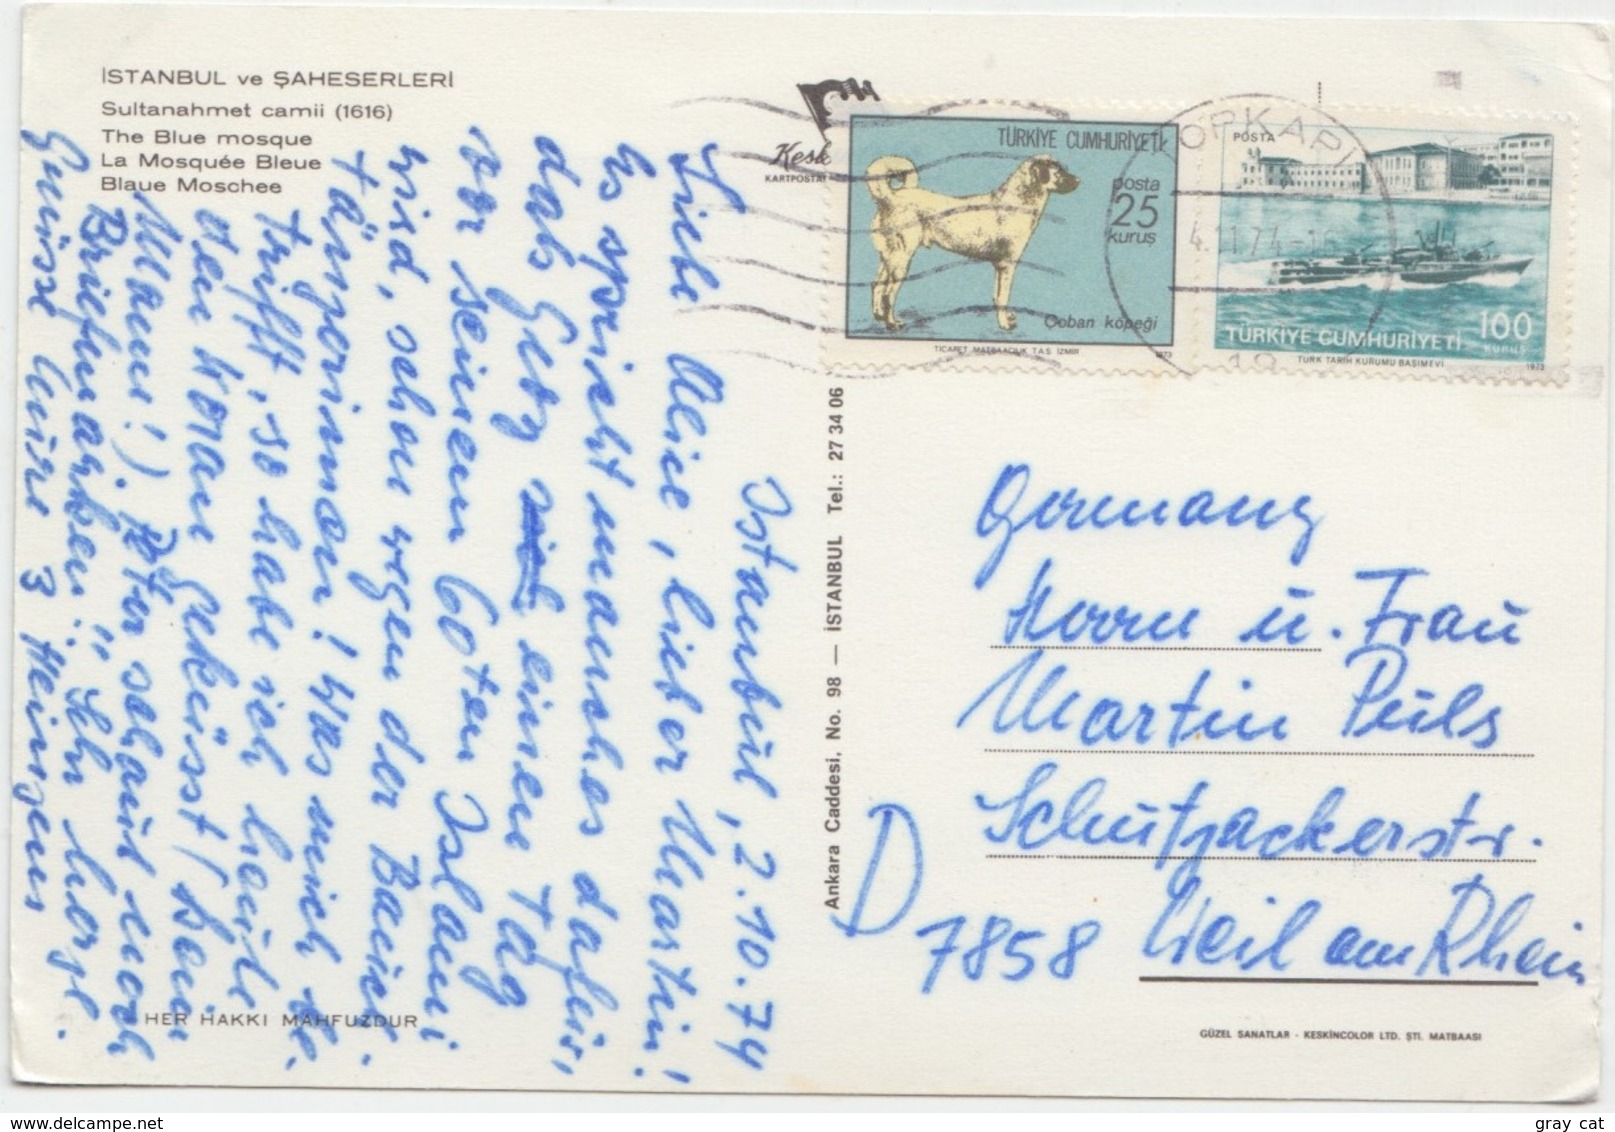 İSTANBUL ve ŞAHESERLERİ
Sultanahmet camii (1616)
The Blue mosque
La Mosquée Bleue
Blaue Moschee
Kesk
KARTPOSTAL
TÜRKİYE CUMHURİYETİ
posta
25
kuruş
Çoban köpeği
TİCARET MATBAACILIK T.A.Ş. İZMİR 1973
TOPKAPI
4.11.74-1
19
POSTA
100
KURUŞ
TÜRKİYE CUMHURİYETİ
TÜRK TARİH KURUMU BASIMEVİ 1973
Istanbul, 2.10.74
Liebe Alice, lieber Martin!
Es spricht manches dafür,
dass Georg einen Tag
vor seinem 60ten Islam
wird, schon wegen der Bauch-
tänzerinnen! Was mich be-
trifft, so habe ich heute
den Koran geküsst (beim
Mann!) Peter schaut nach
Briefmarken. Sehr herzl.
Grüsse Eure 3
Ankara Caddesi, No. 98 — İSTANBUL Tel.: 27 34 06
Germany
Herrn u. Frau
Martin Puls
Schutzackerstr.
D 7858 Weil am Rhein
HER HAKKI MAHFUZDUR
GÜZEL SANATLAR - KESKİNCOLOR LTD. ŞTİ. MATBAASI
gray cat